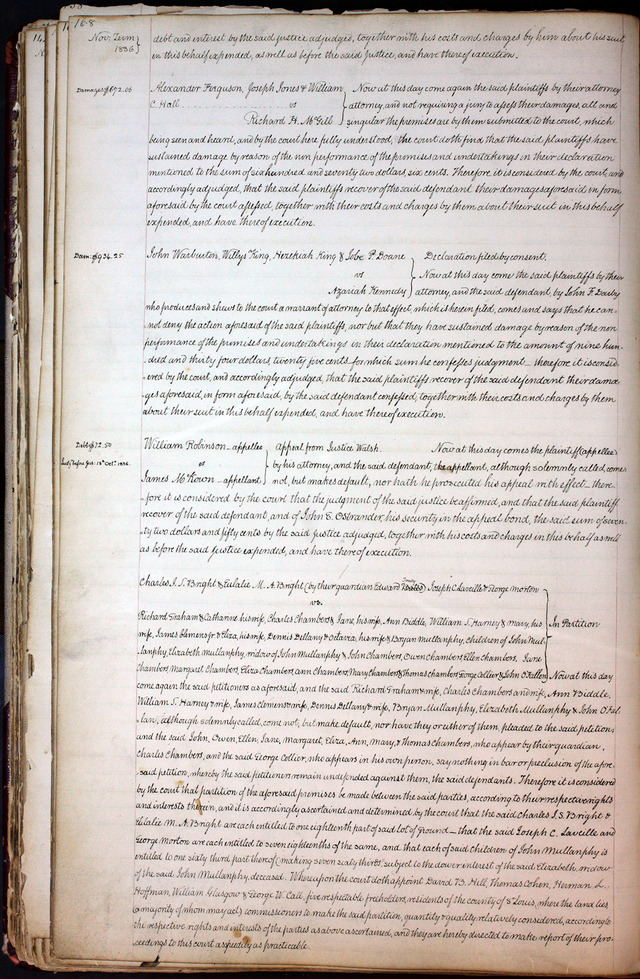 168
Nov. Term
1836
debt and interest by the said justice adjudged, together with his costs and charges by him about his suit
in this behalf expended, as well as before the said Justice, and have thereof execution.
Damages $672.06
Alexander Ferguson, Joseph Jones & William
C. Hall
vs
Richard H. McGill
Now at this day come again the said plaintiffs by their attorney
attorney, and not requiring a jury to assess their damages, all and
singular the premises are by them submitted to the court, which
being seen and heard, and by the court here fully understood, the court doth find that the said plaintiffs have
sustained damage by reason of the non performance of the premises and undertakings in their declaration
mentioned to the sum of six hundred and seventy two dollars, six cents. Therefore it is considered by the court, and
accordingly adjudged, that the said plaintiffs recover of the said defendant their damages aforesaid in form
aforesaid by the court assessed, together with their costs and charges by them about their suit in this behalf
expended, and have thereof execution.
Dam: $934.25
John Warburton, Willys King, Hezekiah King & Jobe P. Doane
vs
Azariah Kennedy
Declaration filed by consent.
Now at this day come the said plaintiffs by their
attorney, and the said defendant, by John F. Darby
who produces and shews to the court a warrant of attorney to that effect, which is herein filed, comes and says that he can-
not deny the action aforesaid of the said plaintiffs, nor but that they have sustained damage by reason of the non
performance of the premises and undertakings in their declaration mentioned to the amount of nine hun-
dred and thirty four dollars, twenty five cents for which sum he confesses judgment — therefore it is consid-
ered by the court, and accordingly adjudged, that the said plaintiffs, recover of the said defendant their dama-
ges aforesaid, in form aforesaid, by the said defendant confessed, together with their costs and charges by them
about their suit in this behalf expended, and have thereof execution.
Debt $72.50
William Robinson — appellee
vs
James McKown — appellant
Appeal from Justice Walsh.
Now at this day comes the plaintiff (appellee)
by his attorney, and the said defendant, the appellant, although solemnly called, comes
not, but makes default, nor hath he prosecuted his appeal with effect — there-
fore it is considered by the court that the judgment of the said justice be affirmed, and that the said plaintiff
recover of the said defendant, and of John S. Ostrander, his security in the appeal bond, the said sum of seven-
ty two dollars and fifty cents by the said justice adjudged, together with his costs and charges in this behalf as well
as before the said Justice expended, and have thereof execution.
Charles J. S. Bright & Eulalie M. A. Bright (by their guardian Edward) Joseph C. Laveille & George Morton
vs.
Richard Graham & Catharine his wife, Charles Chambers & Jane, his wife, Ann Biddle, William S. Harney & Mary, his
wife, James Clemens Jr & Eliza, his wife, Dennis Dellany & Octavia, his wife & Bryan Mullanphy, children of John Mul-
lanphy, Elizabeth Mullanphy, widow of John Mullanphy & John Chambers, Owen Chambers, Ellen Chambers, Jane
Chambers, Margaret Chambers, Eliza Chambers, Ann Chambers, Mary Chambers & Thomas Chambers, George Collier & John O'Fallon
In Partition
Now at this day
come again the said petitioners as aforesaid, and the said Richard Graham & wife, Charles Chambers and wife, Ann Biddle,
William S. Harney & wife, James Clemens & wife, Dennis Dellany & wife, Bryan Mullanphy, Elizabeth Mullanphy & John O'Fal-
lon, although solemnly called, come not, but make default, nor have they or either of them, pleaded to the said petition;
and the said John, Owen, Ellen, Jane, Margaret, Eliza, Ann, Mary & Thomas Chambers, who appear by their guardian,
Charles Chambers, and the said George Collier, who appears in his own person, say nothing in bar or preclusion of the afore-
said petition, whereby the said petitioners remain undefended against them, the said defendants. Therefore it is considered
by the court that partition of the aforesaid premises be made between the said parties, according to their respective rights
and interests therein, and it is accordingly ascertained and determined by the court that the said Charles J. S. Bright &
Eulalie M. A. Bright are each entitled to one eighteenth part of said lot of ground — that the said Joseph C. Laveille and
George Morton are each entitled to seven eighteenths of the same, and that each of said children of John Mullanphy is
entitled to one sixty third part thereof (making seven sixty thirds) subject to the dower interest of the said Elizabeth, widow
of the said John Mullanphy, deceased. Whereupon the court doth appoint David B. Hill, Thomas Cohen, Herman L.
Hoffman, William Glasgow & George W. Call, five respectable freeholders, residents of the county of St Louis, where the land lies
(a majority of whom may act) commissioners to make the said partition, quantity & quality relatively considered, according to
the respective rights and interests of the parties as above ascertained, and they are hereby directed to make report of their pro-
ceedings to this court as speedily as practicable.